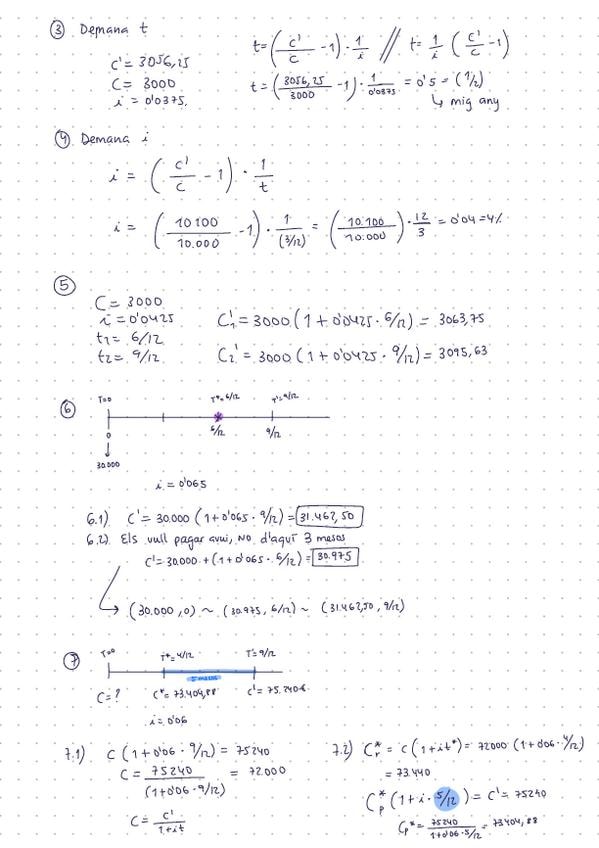 ③ Demana t
c' = 3056,25
C = 3000
i = 0'0375.
t = (c'/c - 1) · 1/i // t = 1/i (c'/c - 1)
t = (3056,25/3000 - 1) · 1/0'0375 = 0'5 = (1/2)
↳ mig any
④ Demana i
i = (c'/c - 1) · 1/t
i = (10100/10.000 - 1) · 1/(3/12) = (10.100/10.000) · 12/3 = 0'04 = 4%
⑤
C = 3000
i = 0'0425
t1 = 6/12
t2 = 9/12
C'1 = 3000 (1 + 0'0425 · 6/12) = 3063,75
C2' = 3000 (1 + 0'0425 · 9/12) = 3095,63
⑥
T=0 T*=6/12 T'=9/12
0 6/12 9/12
30.000
i = 0'065
6.1) C' = 30.000 (1 + 0'065 · 9/12) = 31.462,50
6.2) Els vull pagar avui, NO d'aquí 3 mesos
C' = 30.000 + (1 + 0'065 · 6/12) = 30.975
(30.000, 0) ~ (30.975, 6/12) ~ (31.462,50, 9/12)
⑦
T=0 T*=4/12 T'=9/12
5 mesos
C = ? C* = 73.404,88 C' = 75.240€
i = 0'06
7.1) C (1 + 0'06 · 9/12) = 75240
C = 75240/(1+0'06·9/12) = 72.000
C = C'/1+it
7.2) C*r = C (1 + it*) = 72000 (1 + 0'06 · 4/12)
= 73.440
C*p (1 + i · 5/12) = C' = 75240
Cp* = 75240/1+0'06·5/12 = 73404,88